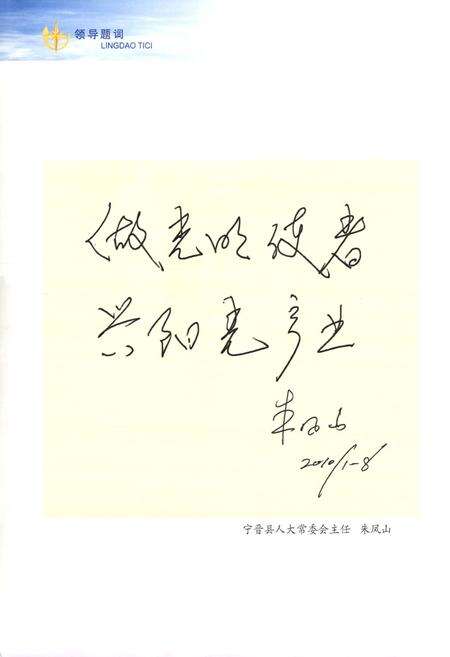 领导题词
LINGDAO TICI
做光明使者
兴阳光产业
朱凤山
2010/1-8
宁晋县人大常委会主任 朱凤山